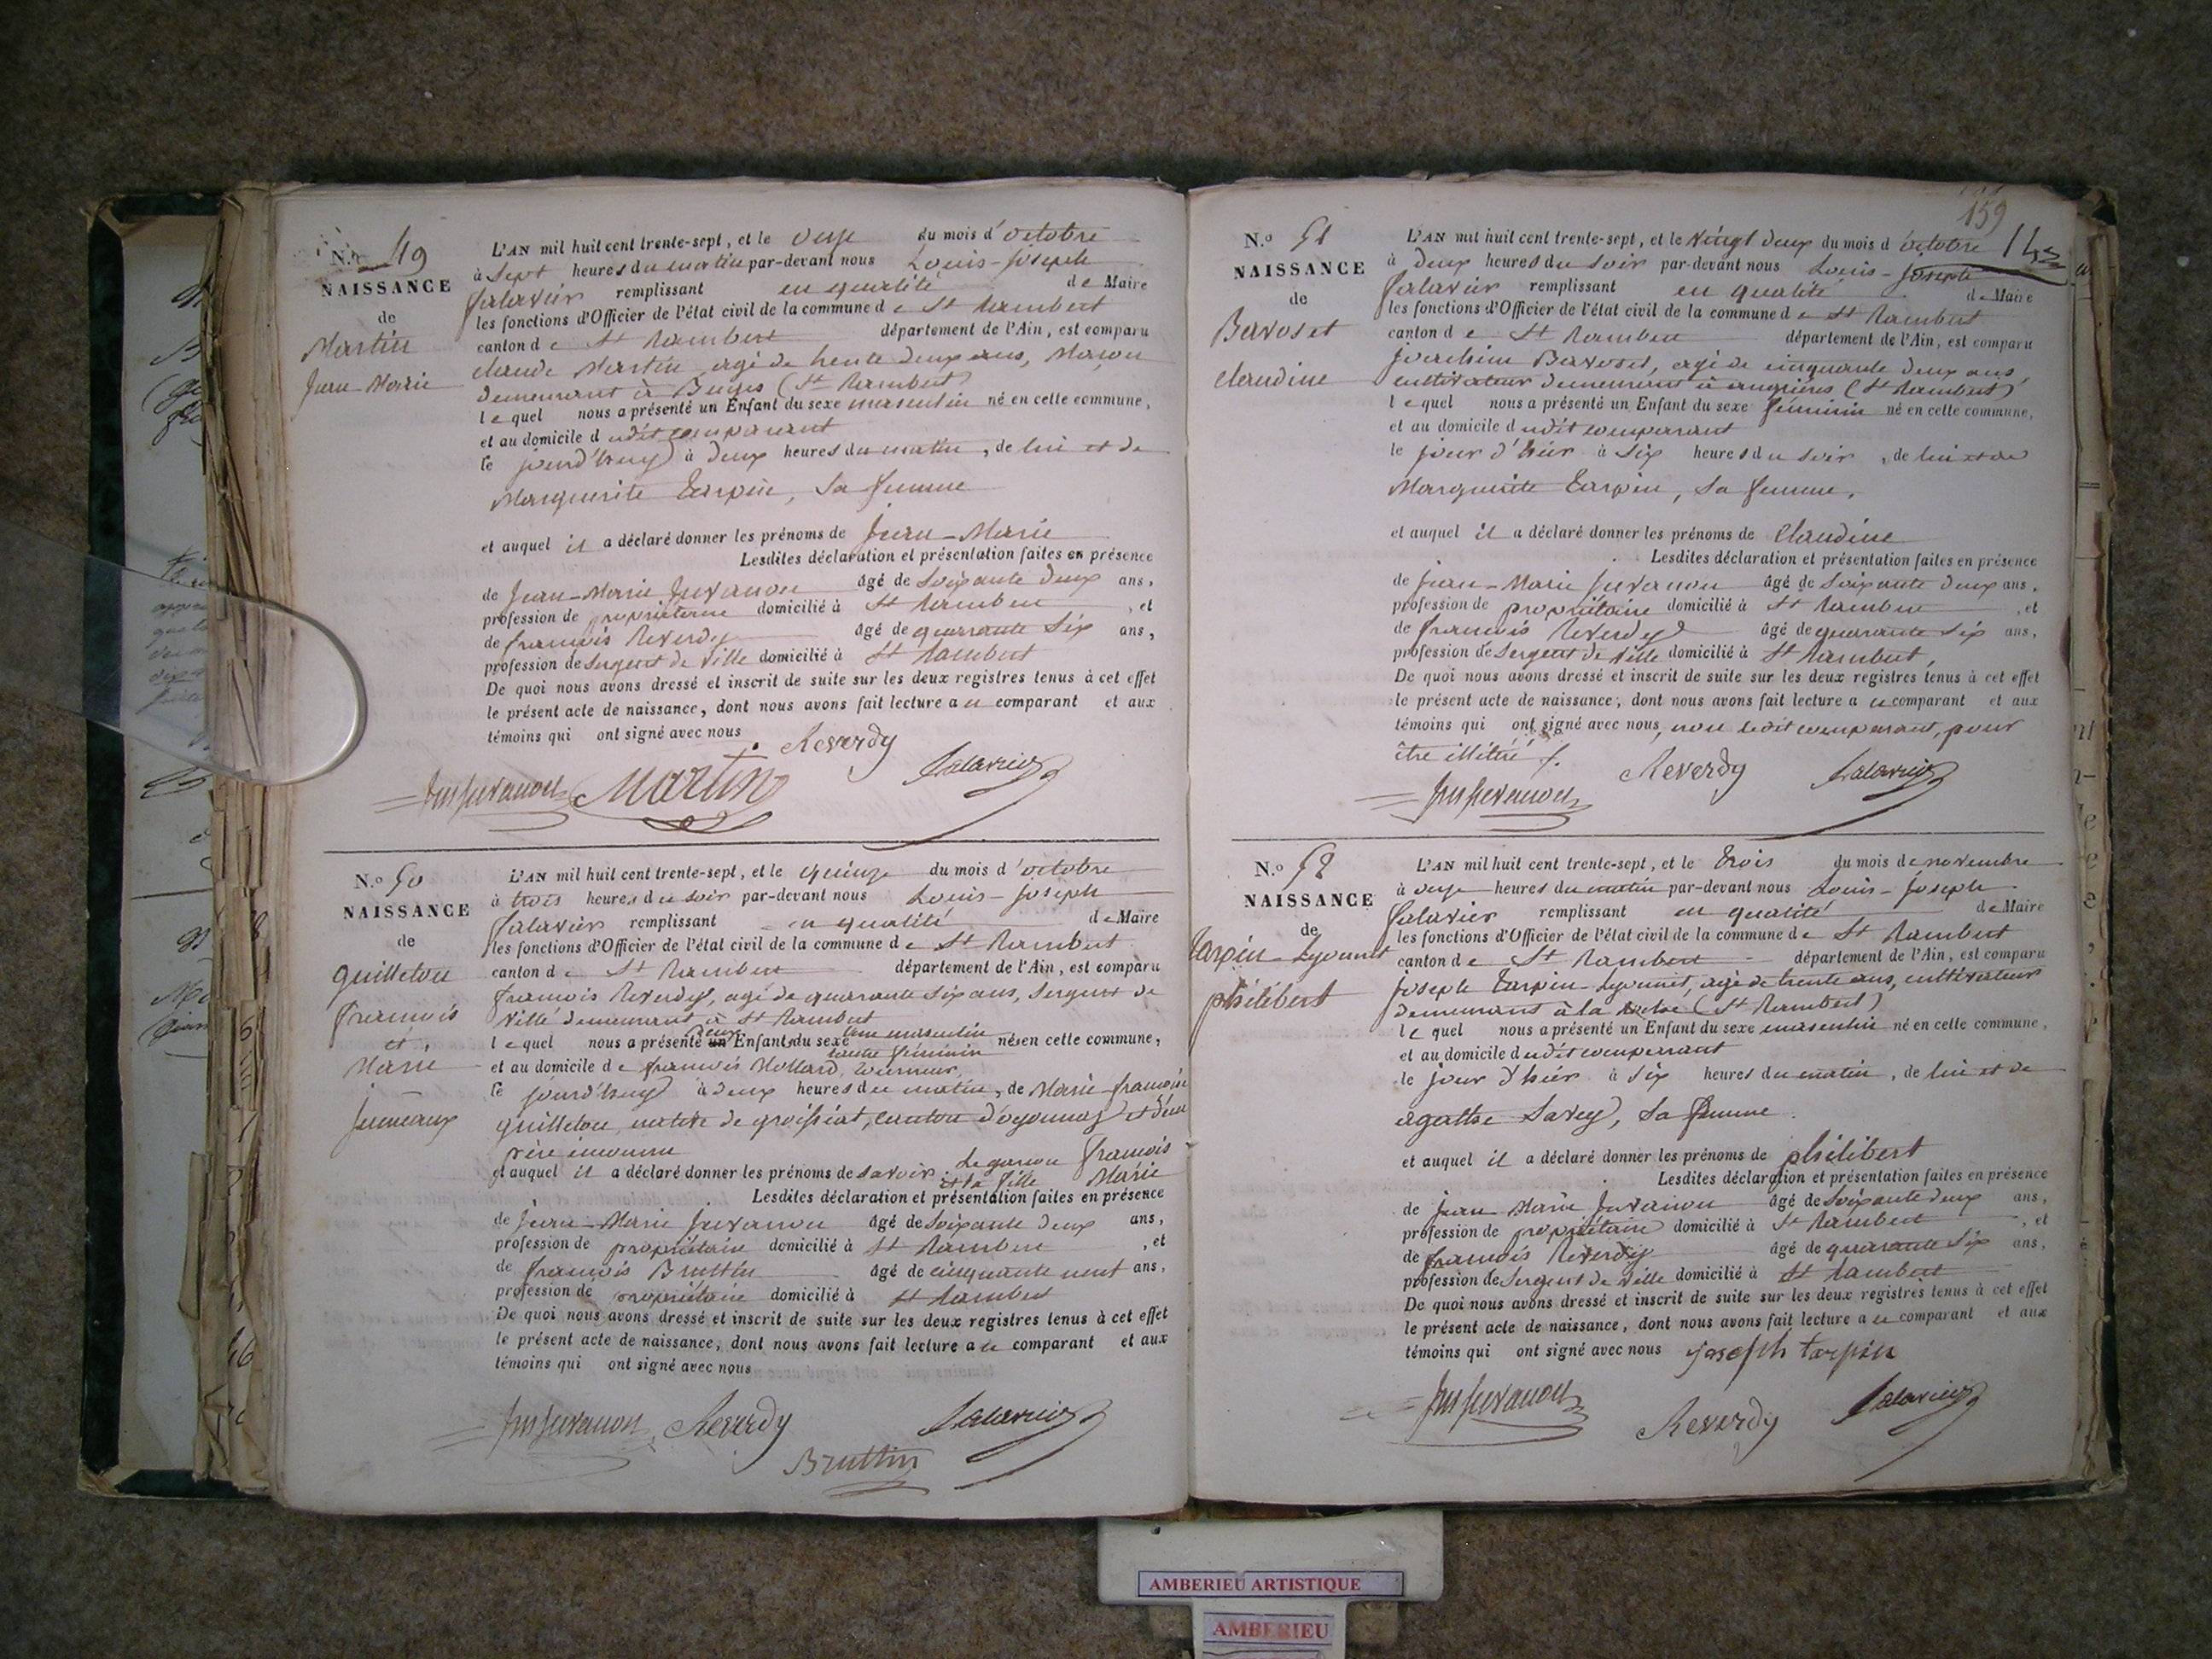 N.o 49
NAISSANCE
de
Martin
Jean-Marie
L'AN mil huit cent trente-sept, et le onze du mois d'octobre
à sept heures du matin par-devant nous Louis-Joseph
Falavier remplissant en qualité de Maire
les fonctions d'Officier de l'état civil de la commune de St Rambert
canton de St Rambert département de l'Ain, est comparu
claude Martin, agé de trente deux ans, Maçon
demeurant à (St Rambert)
lequel nous a présenté un Enfant du sexe masculin né en cette commune,
et au domicile dudit comparant
le jourd'huy à deux heures du matin, de lui et de
Marguerite Tarpin, sa femme
et auquel il a déclaré donner les prénoms de Jean-Marie
Lesdites déclaration et présentation faites en présence
de Jean-Marie Juvanon âgé de soixante deux ans,
profession de propriétaire domicilié à St Rambert, et
de françois Reverdy âgé de quarante six ans,
profession de sergent de ville domicilié à St Rambert
De quoi nous avons dressé et inscrit de suite sur les deux registres tenus à cet effet
le présent acte de naissance, dont nous avons fait lecture au comparant et aux
témoins qui ont signé avec nous.
Reverdy
Jm Juvanon Martin Falavier
N.o 50
NAISSANCE
de
quilleton
françois
et
Marie
jumeaux
L'AN mil huit cent trente-sept, et le quinze du mois d'octobre
à trois heures du soir par-devant nous Louis-Joseph
Falavier remplissant en qualité de Maire
les fonctions d'Officier de l'état civil de la commune de St Rambert
canton de St Rambert département de l'Ain, est comparu
françois Reverdy, agé de quarante six ans, sergent de
ville demeurant à St Rambert
lequel nous a présenté un deux Enfants du sexe l'un masculin nés en cette commune,
l'autre féminin
et au domicile de françois Mollard,
le jourd'huy à deux heures du matin, de Marie-françoise
quilleton, native de groissiat, canton d'oyonnaz et d'un
père inconnu
et auquel il a déclaré donner les prénoms de savoir: Le garçon françois
et la fille Marie
Lesdites déclaration et présentation faites en présence
de Jean-Marie Juvanon âgé de soixante deux ans,
profession de propriétaire domicilié à St Rambert, et
de françois Bruttin âgé de cinquante neuf ans,
profession de propriétaire domicilié à St Rambert
De quoi nous avons dressé et inscrit de suite sur les deux registres tenus à cet effet
le présent acte de naissance, dont nous avons fait lecture au comparant et aux
témoins qui ont signé avec nous
Jm Juvanon Reverdy Falavier
Bruttin
159
N.o 51
NAISSANCE
de
Bavoset
claudine
L'AN mil huit cent trente-sept, et le vingt deux du mois d'octobre
à deux heures du soir par-devant nous Louis-Joseph
Falavier remplissant en qualité de Maire
les fonctions d'Officier de l'état civil de la commune de St Rambert
canton de St Rambert département de l'Ain, est comparu
joachim Bavoset, agé de cinquante deux ans,
cultivateur demeurant à angrières (St Rambert)
lequel nous a présenté un Enfant du sexe féminin né en cette commune,
et au domicile dudit comparant
le jour d'hier à six heures du soir, de lui et de
Marguerite Tarpin, sa femme,
et auquel il a déclaré donner les prénoms de Claudine
Lesdites déclaration et présentation faites en présence
de Jean-Marie Juvanon âgé de soixante deux ans,
profession de propriétaire domicilié à St Rambert, et
de françois Reverdy âgé de quarante six ans,
profession de sergent de ville domicilié à St Rambert,
De quoi nous avons dressé et inscrit de suite sur les deux registres tenus à cet effet
le présent acte de naissance, dont nous avons fait lecture au comparant et aux
témoins qui ont signé avec nous, non ledit comparant, pour
être illitéré
Jm Juvanon Reverdy Falavier
N.o 52
NAISSANCE
de
Tarpin-Lyonnet
philibert
L'AN mil huit cent trente-sept, et le trois du mois de novembre
à onze heures du matin par-devant nous Louis-Joseph
Falavier remplissant en qualité de Maire
les fonctions d'Officier de l'état civil de la commune de St Rambert
canton de St Rambert département de l'Ain, est comparu
joseph Tarpin-Lyonnet, agé de trente ans, cultivateur
demeurant à la (St Rambert)
lequel nous a présenté un Enfant du sexe masculin né en cette commune,
et au domicile dudit comparant
le jour d'hier à six heures du matin, de lui et de
agathe Savey, sa femme
et auquel il a déclaré donner les prénoms de philibert
Lesdites déclaration et présentation faites en présence
de Jean-Marie Juvanon âgé de soixante deux ans,
profession de propriétaire domicilié à St Rambert, et
de françois Reverdy âgé de quarante six ans,
profession de sergent de ville domicilié à St Rambert
De quoi nous avons dressé et inscrit de suite sur les deux registres tenus à cet effet
le présent acte de naissance, dont nous avons fait lecture au comparant et aux
témoins qui ont signé avec nous joseph tarpin
Jm Juvanon Reverdy Falavier
AMBERIEU ARTISTIQUE
AMBERIEU